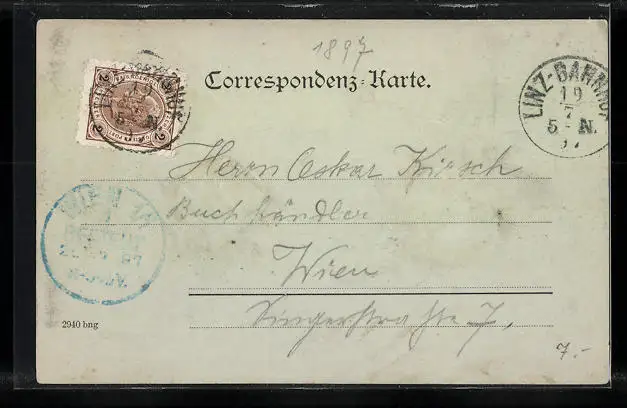 1897
Correspondenz-Karte.
LINZ-BAHNHOF
19
7
5-N.
97
2 2
Herrn Oskar Kirsch
Buchhändler
Wien
Singerstraße 7,
WIEN
2940 bng
7.-